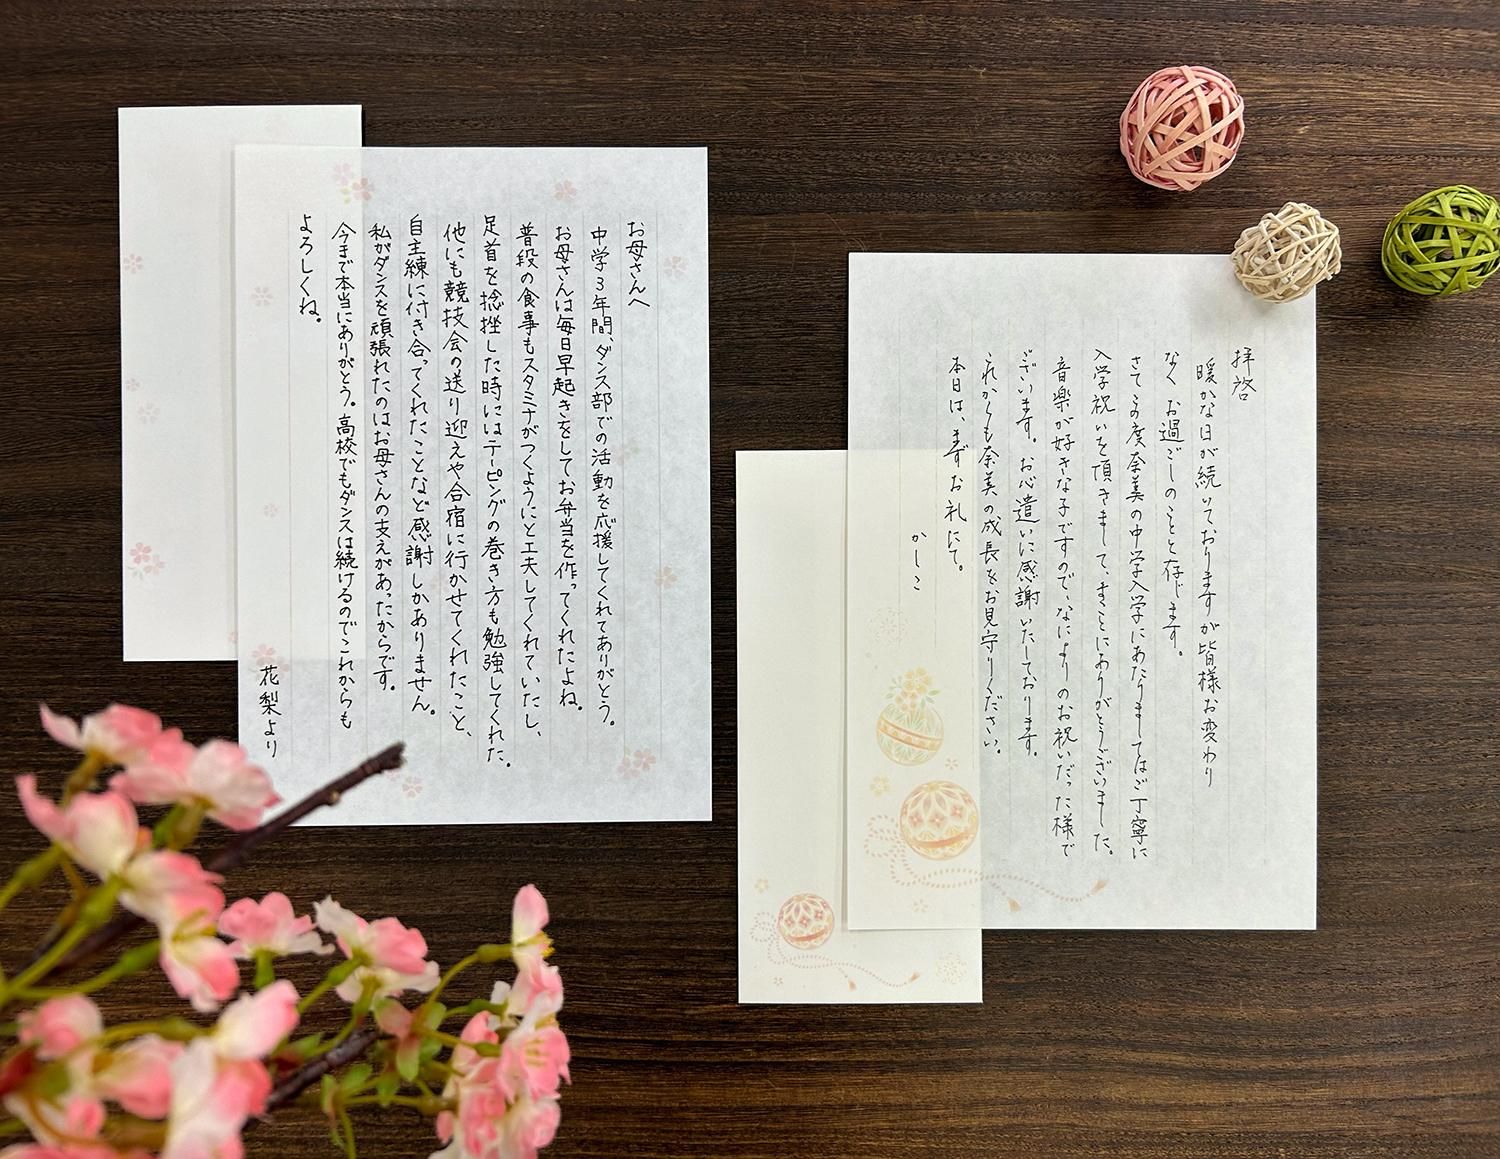 お母さんへ
中学3年間、ダンス部での活動を応援してくれてありがとう。
お母さんは毎日早起きをしてお弁当を作ってくれたよね。
普段の食事もスタミナがつくようにと工夫してくれていたし、
足首を捻挫した時にはテーピングの巻き方も勉強してくれた。
他にも競技会の送り迎えや合宿に行かせてくれたこと、
自主練に付き合ってくれたことなど感謝しかありません。
私がダンスを頑張れたのはお母さんの支えがあったからです。
今まで本当にありがとう。高校でもダンスは続けるのでこれからも
よろしくね。
花梨より
拝啓
暖かな日が続いておりますが皆様お変わり
なくお過ごしのことと存じます。
さてこの度奈美の中学入学にあたりましてはご丁寧に
入学祝いを頂きまして、まことにありがとうございました。
音楽が好きな子ですので、なによりのお祝いだった様で
ございます。お心遣いに感謝いたしております。
これからも奈美の成長をお見守りください。
本日は、まずお礼にて。
かしこ